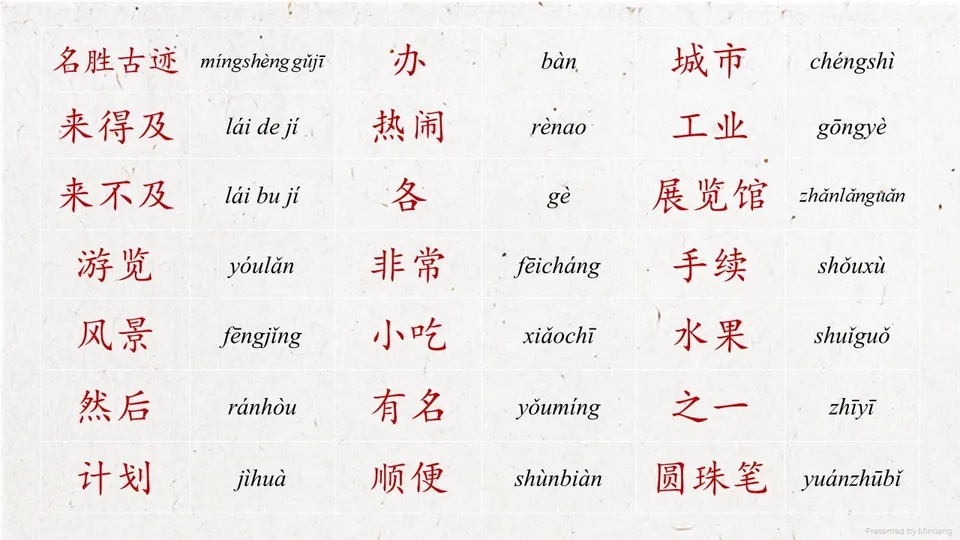 名胜古迹 míngshèng gǔjī 办 bàn 城市 chéngshì
来得及 lái de jí 热闹 rènao 工业 gōngyè
来不及 lái bu jí 各 gè 展览馆 zhǎnlǎnguǎn
游览 yóulǎn 非常 fēicháng 手续 shǒuxù
风景 fēngjǐng 小吃 xiǎochī 水果 shuǐguǒ
然后 ránhòu 有名 yǒumíng 之一 zhīyī
计划 jìhuà 顺便 shùnbiàn 圆珠笔 yuánzhūbǐ
Presented by Minliang